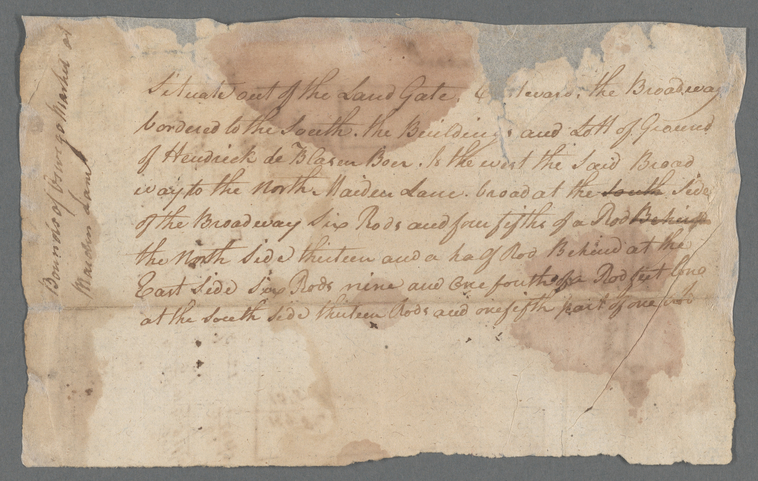 Situate out of the Land Gate, Eastward, the Broadway
bordered to the South. the Buildings and Lott of Ground
of Hendrick de Boer. To the west the Said Broad
way to the North. Maiden Lane. broad at the South Side
of the Broadway Six Rods and four fifths of a Rod Behind
the North Side thirteen and a half Rod Behind at the
East Side Six Rods nine and one fourth of a Rod feet long
at the South Side thirteen Rods and one fifth part of one rod
Bounds of Oswego Market at
Maiden Lane